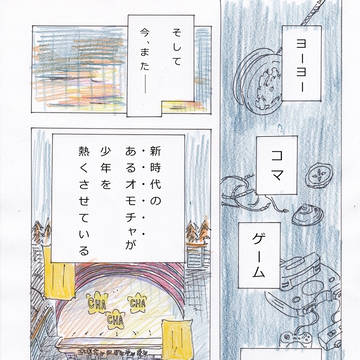 ヨーヨー
コマ
ゲーム
そして
今、また――
新時代の
あるオモチャが
少年を
熱くさせている
CHA
CHA
CHA